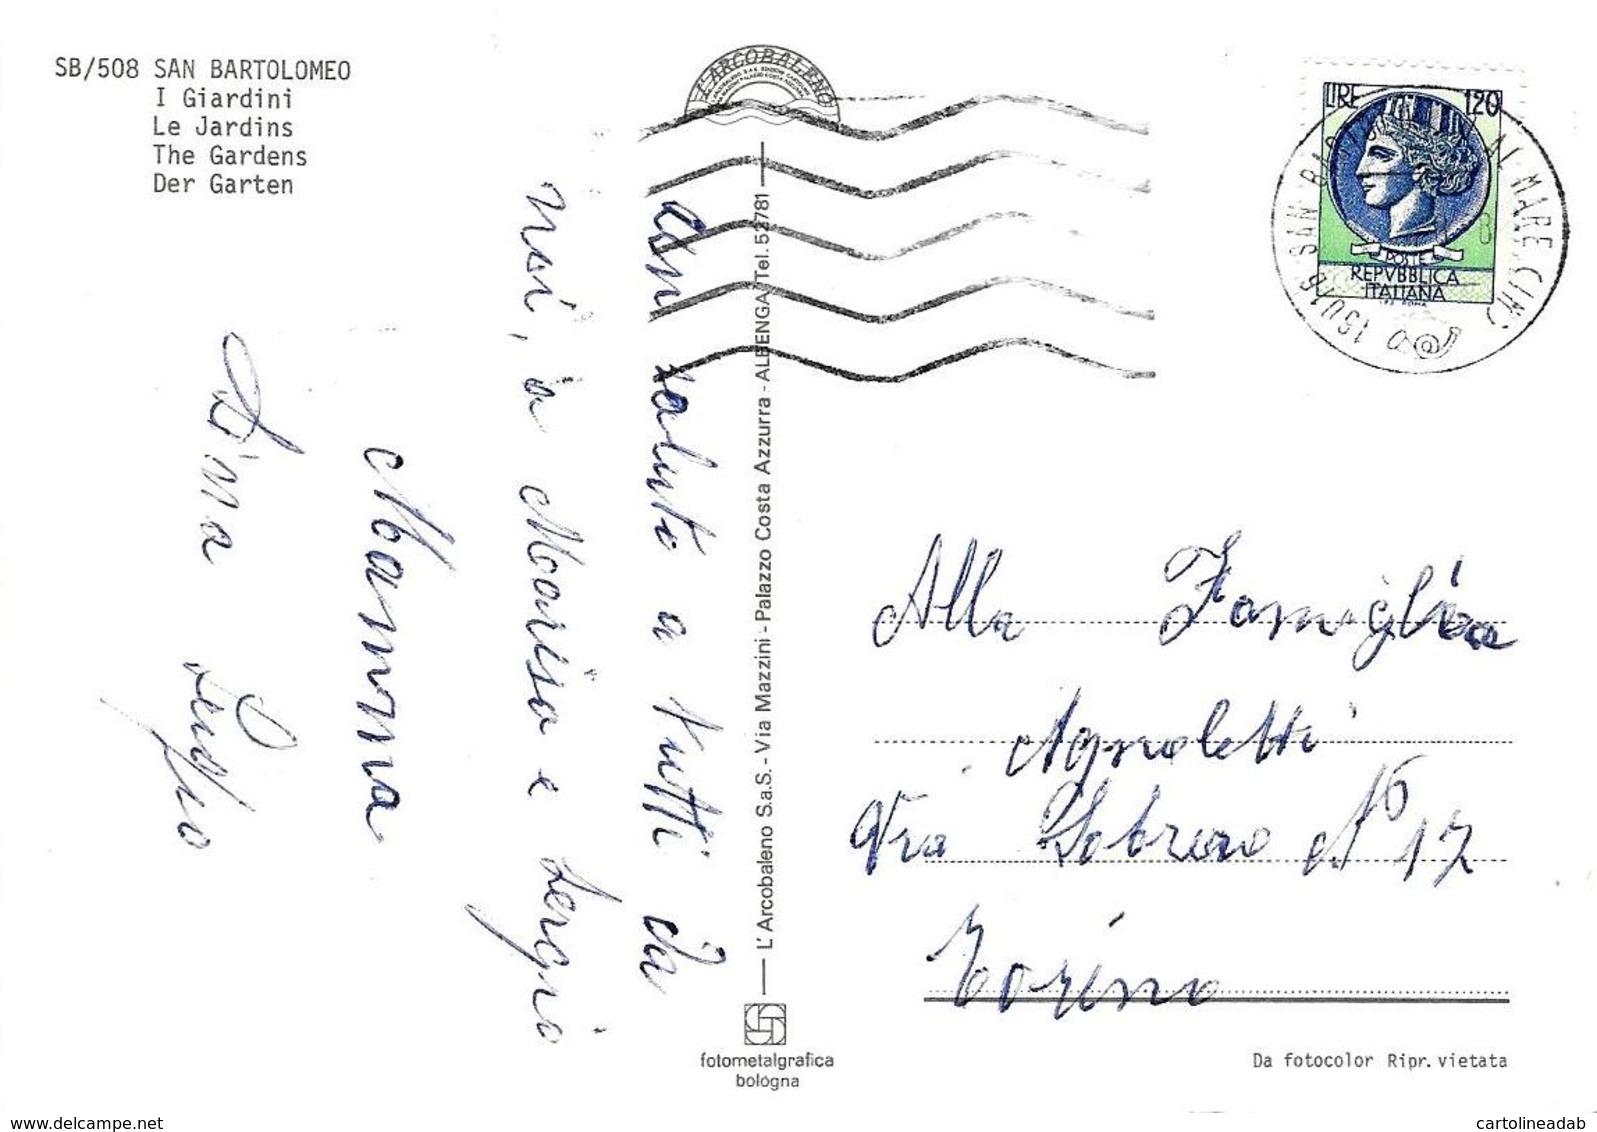 SB/508 SAN BARTOLOMEO
I Giardini
Le Jardins
The Gardens
Der Garten
L'ARCOBALENO
LIRE 120
POSTE
REPVBBLICA
ITALIANA
SAN BARTOLOMEO AL MARE (IM)
con saluto a tutti da
noi, a Marisa e Sergio
Mamma
Dina
L'Arcobaleno S.a.S. - Via Mazzini - Palazzo Costa Azzurra - ALBENGA/Tel. 52781
Alla Famiglia
Agnoletti
Via Sobrero N° 17
Torino
fotometalgrafica
bologna
Da fotocolor Ripr. vietata
www.delcampe.net
cartolineadab